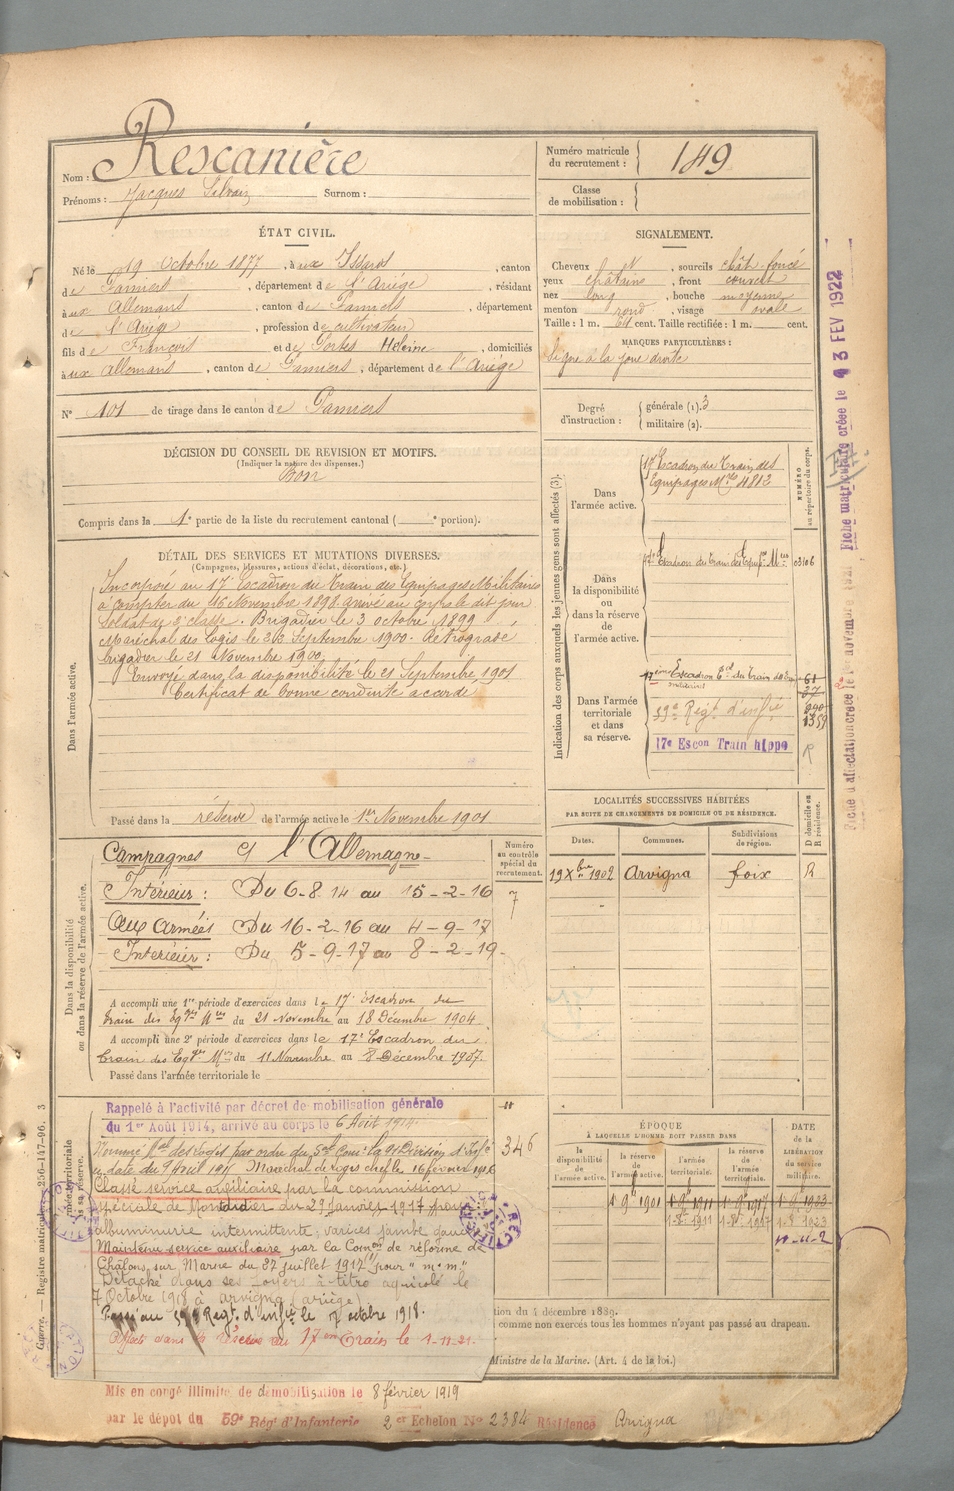 Nom : Rescanière
Prénoms : Jacques Silvain Surnom :
Numéro matricule du recrutement : 149
Classe de mobilisation :
ÉTAT CIVIL.
Né le 19 Octobre 1877, à ux Issards, canton
de Pamiers, département de l'Ariège, résidant
à ux Allemans, canton de Pamiers, département
de l'Ariège, profession de cultivateur
fils de François et de Portes Heleine, domiciliés
à ux Allemans, canton de Pamiers, département de l'Ariège
N° 101 de tirage dans le canton de Pamiers
SIGNALEMENT.
Cheveux N, sourcils chât. foncé
yeux châtains, front couvert
nez long, bouche moyenne
menton rond, visage ovale
Taille : 1 m. 61 cent. Taille rectifiée : 1 m. cent.
MARQUES PARTICULIÈRES :
Signe à la joue droite
Degré d'instruction : générale (1). 3
militaire (2).
DÉCISION DU CONSEIL DE REVISION ET MOTIFS.
(Indiquer la nature des dispenses.)
Bon
Compris dans la 1e partie de la liste du recrutement cantonal ( e portion).
DÉTAIL DES SERVICES ET MUTATIONS DIVERSES.
(Campagnes, blessures, actions d'éclat, décorations, etc.)
Dans l'armée active.
Incorporé au 17e Escadron du Train des Équipages Militaires
à compter du 16 Novembre 1898 arrivé au corps le dit jour
Soldat de 2e classe. Brigadier le 3 octobre 1899
Maréchal des logis le 23 Septembre 1900. Rétrogradé
brigadier le 21 Novembre 1900.
Envoyé dans la disponibilité le 21 Septembre 1901
Certificat de bonne conduite accordé
Passé dans la réserve de l'armée active le 1er Novembre 1901
Indication des corps auxquels les jeunes gens sont affectés (3).
NUMÉRO au répertoire du corps.
Dans l'armée active.
17e Escadron du Train des
Equipages Mres 4813
Dans la disponibilité ou dans la réserve de l'armée active.
17e Escadron du Train des Equip. Mres 03106
Dans l'armée territoriale et dans sa réserve.
17ème Escadron du Train 61
militaires 37
59e Régt d'infie
1359
17e Escon Train hippo R
LOCALITÉS SUCCESSIVES HABITÉES
PAR SUITE DE CHANGEMENTS DE DOMICILE OU DE RÉSIDENCE.
Dates. Communes. Subdivisions de région. D domicile ou R résidence.
19 Xbre 1902 Arvigna foix R
Dans la disponibilité ou dans la réserve de l'armée active.
Numéro au contrôle spécial du recrutement.
7
Campagnes Ct l'Allemagne
Intérieur : Du 6-8-14 au 15-2-16
Aux Armées Du 16-2-16 au 4-9-17
Intérieur : Du 5-9-17 au 8-2-19
A accompli une 1re période d'exercices dans le 17e escadron du
train des Eqges Mres du 21 Novembre au 18 Décembre 1904
A accompli une 2e période d'exercices dans le 17e Escadron du
train des Eqges Mres du 11 Novembre au 8 Décembre 1907.
Passé dans l'armée territoriale le
Rappelé à l'activité par décret de mobilisation générale
du 1er Août 1914, arrivé au corps le 6 Août 1914.
346
Nommé Mal des logis par ordre du Gal Comt la 91e Division d'Infie
en date du 9 Avril 1915 Maréchal des logis chef le 16 février 1916
Classé service auxiliaire par la commission
spéciale de Montdidier du 29 Janvier 1917 pour
albuminurie intermittente, varices jambe gauche
Maintenu service auxiliaire par la Comon de réforme de
Châlons sur Marne du 27 juillet 1917 pour " m. m."
Détaché dans ses foyers à titre agricole le
7 Octobre 1918 à Arvigna (ariège)
Passé au 59e Régt. d'infie le 7 octobre 1918.
Affecté dans la réserve au 17ème Train le 1-11-21.
ÉPOQUE
À LAQUELLE L'HOMME DOIT PASSER DANS
DATE de la LIBÉRATION du service militaire.
la disponibilité de l'armée active. la réserve de l'armée active. l'armée territoriale. la réserve de l'armée territoriale.
1 9bre 1901 1 9bre 1911 1 9bre 1917 1 9bre 1923
1-8-1911 1-8-1917 1-8-1923
tion du 4 décembre 1889.
comme non exercés tous les hommes n'ayant pas passé au drapeau.
Ministre de la Marine. (Art. 4 de la loi.)
Mis en congé illimité de démobilisation le 8 février 1919
par le dépot du 59e Régt d'Infanterie 2e Echelon No 2384 Résidence Arvigna
Guerre. — Registre matricule. 256-147-96. 3
Fiche d'affectation créée le 1er novembre 1921
Fiche matriculaire créée le 3 FEV 1922